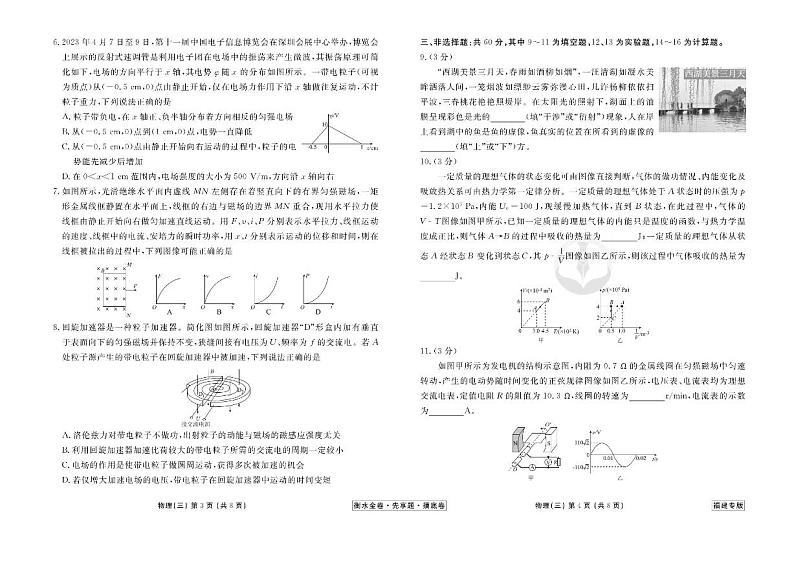 6. 2023年4月7日至9日,第十一届中国电子信息博览会在深圳会展中心举办,博览会
上展示的反射式速调管是利用电子团在电场中的振荡来产生微波,其振荡原理可简
化如下,电场的方向平行于x轴,其电势φ随x的分布如图所示。一带电粒子(可视
为质点)从(-0.5 cm,0)点由静止开始,仅在电场力作用下沿x轴做往复运动,不计
粒子重力,下列说法正确的是
A. 粒子带负电,在x轴正、负半轴分布着方向相反的匀强电场
B. 从(-0.5 cm,0)点到(1 cm,0)点,电势一直降低
C. 从(-0.5 cm,0)点由静止开始向右运动的过程中,粒子的电
势能先减少后增加
D. 在0<x<1 cm范围内,电场强度的大小为500 V/m,方向沿x轴向右
φ/V
-0.5 0 1 x/cm
7. 如图所示,光滑绝缘水平面内虚线MN左侧存在着竖直向下的有界匀强磁场,一矩
形金属线框静置在水平面上,线框的右边与磁场的边界MN重合,现用水平拉力使
线框由静止开始向右做匀加速直线运动。用F、v、i、P分别表示水平拉力、线框运动
的速度、线框中的电流、安培力的瞬时功率,用x、t分别表示运动的位移和时间,则在
线框被拉出的过程中,下列图像可能正确的是
M
F
N
A B C D
8. 回旋加速器是一种粒子加速器。简化图如图所示,回旋加速器“D”形盒内加有垂直
于表面向下的匀强磁场并保持不变,狭缝间接有电压为U、频率为f的交流电。若A
处粒子源产生的带电粒子在回旋加速器中被加速,下列说法正确的是
B
A
U
接交流电源
A. 洛伦兹力对带电粒子不做功,出射粒子的动能与磁场的磁感应强度无关
B. 利用回旋加速器加速比荷较大的带电粒子所需的交流电的周期一定较小
C. 电场的作用是使带电粒子做圆周运动,获得多次被加速的机会
D. 若仅增大加速电场的电压,带电粒子在回旋加速器中运动的时间变短
物理(三) 第3页(共8页)
衡水金卷·先享题·摸底卷
三、非选择题:共60分,其中9~11为填空题,12、13为实验题,14~16为计算题。
9. (3分)
“西湖美景三月天,春雨如酒柳如烟”,一汪清澈如凝水美
眸洒落人间,一笼烟波如缥缈云雾弥漫心田,几许杨柳依依扫
平波,三春桃花艳艳照堤岸。在太阳光的照射下,湖面上的油
膜呈现彩色是光的________(填“干涉”或“衍射”)现象,人在岸
上看到湖中的鱼是鱼的虚像,鱼真实的位置在所看到的虚像的
________(填“上”或“下”)方。
西湖美景三月天
10. (3分)
一定质量的理想气体的状态变化可由图像直接判断,气体的做功情况、内能变化及
吸放热关系可由热力学第一定律分析。一定质量的理想气体处于A状态时的压强为p
=1.2×10⁵ Pa,内能U₁=100 J,现缓慢加热气体,直到B状态,在此过程中,气体的
V-T图像如图甲所示,已知一定质量的理想气体的内能只是温度的函数,与热力学温
度成正比,则气体A→B的过程中吸收的热量为________J;一定质量的理想气体从状
态A经状态B变化到状态C,其p-1/V图像如图乙所示,则该过程中气体吸收的热量为
________J。
V/(×10⁻³ m³)
6
4
2
0 3.0 4.5 T/(×10² K)
甲
p/(×10⁵ Pa)
4
2
0 0.5 1.0
乙
11. (3分)
如图甲所示为发电机的结构示意图,内阻为0.7 Ω的金属线圈在匀强磁场中匀速
转动,产生的电动势随时间变化的正弦规律图像如图乙所示,电压表、电流表均为理想
交流电表,定值电阻R的阻值为10.3 Ω,线圈的转速为________r/min,电流表的示数
为________A。
甲
e/V
110√2
0 0.01 0.02 t/s
-110√2
乙
物理(三) 第4页(共8页)
福建专版